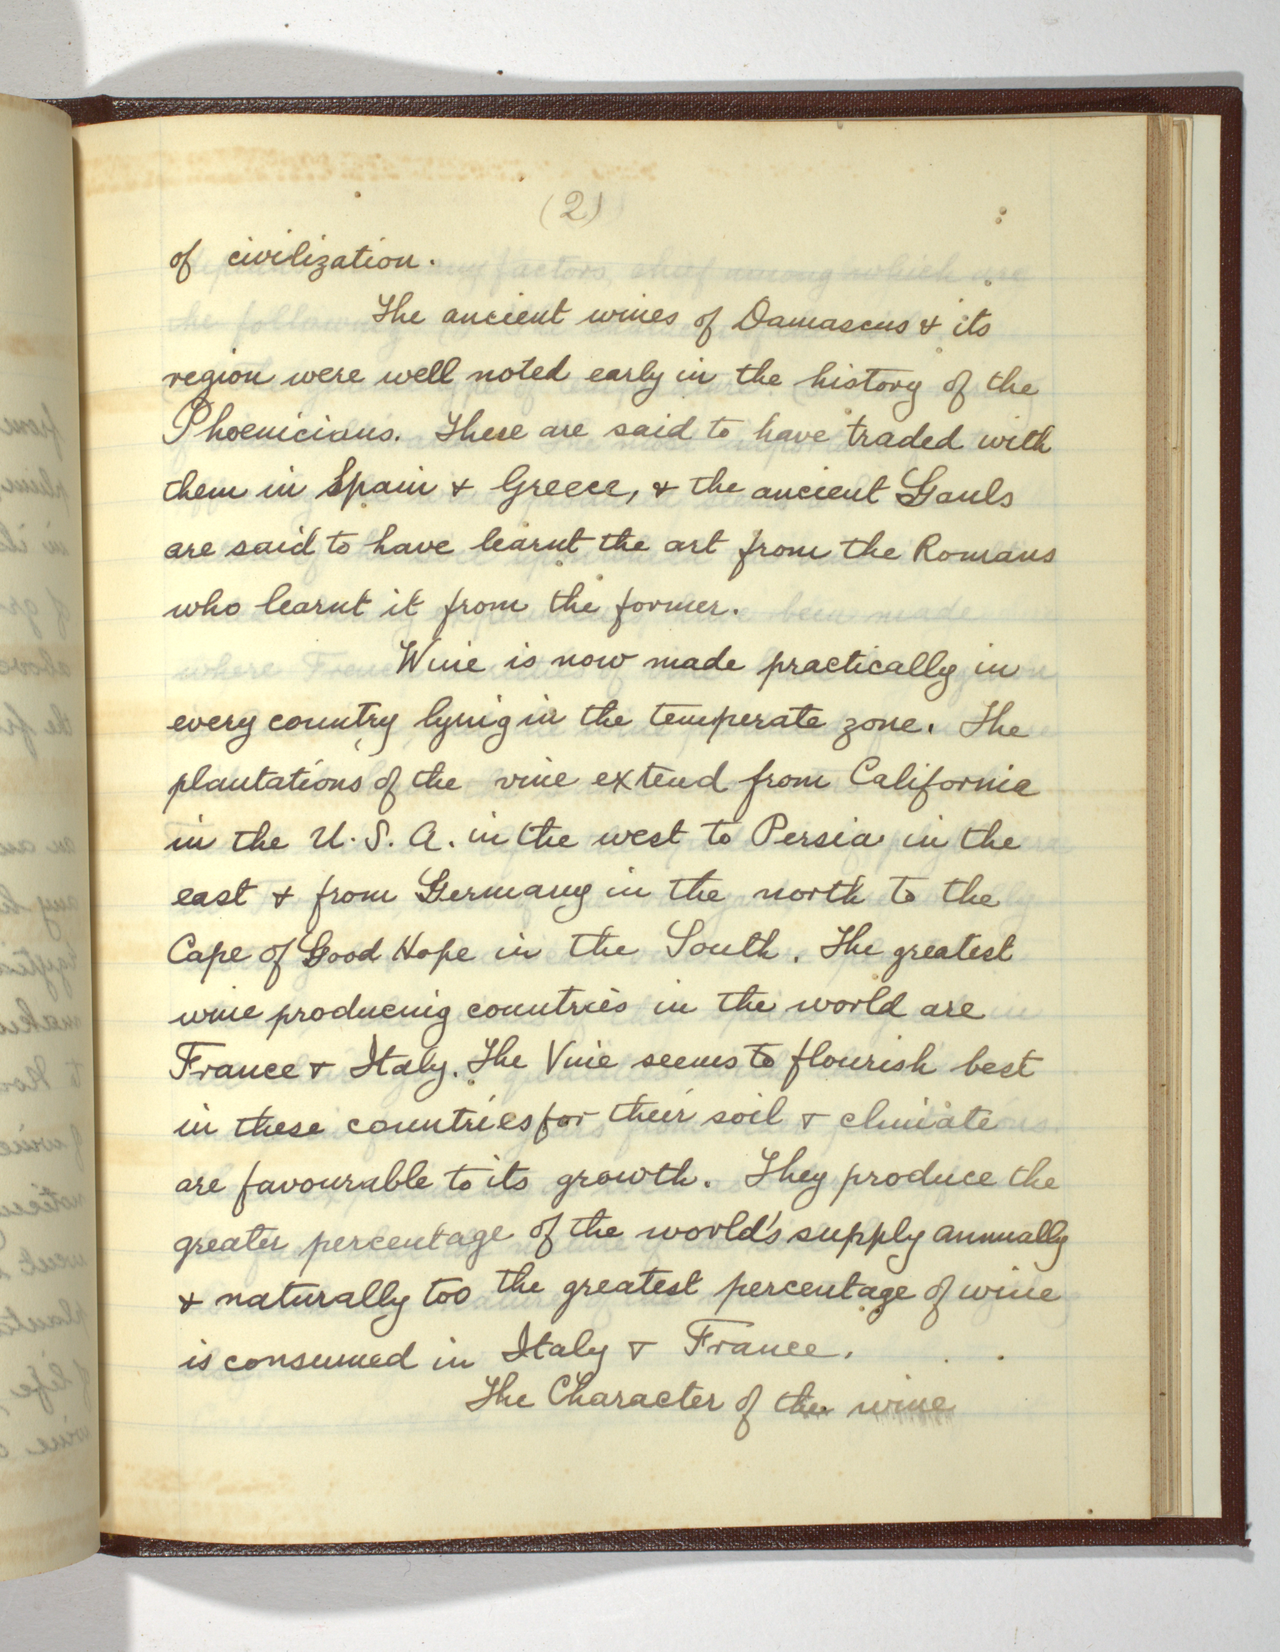 (2)
of civilization.
The ancient wines of Damascus & its
region were well noted early in the history of the
Phoenicians. These are said to have traded with
them in Spain & Greece, & the ancient Gauls
are said to have learnt the art from the Romans
who learnt it from the former.
Wine is now made practically in
every country lying in the temperate zone. The
plantations of the vine extend from California
in the U.S.A. in the west to Persia in the
east & from Germany in the north to the
Cape of Good Hope in the South. The greatest
wine producing countries in the world are
France & Italy. The Vine seems to flourish best
in these countries for their soil & climate
are favourable to its growth. They produce the
greater percentage of the world's supply annually
& naturally too the greatest percentage of wine
is consumed in Italy & France.
The Character of the wine